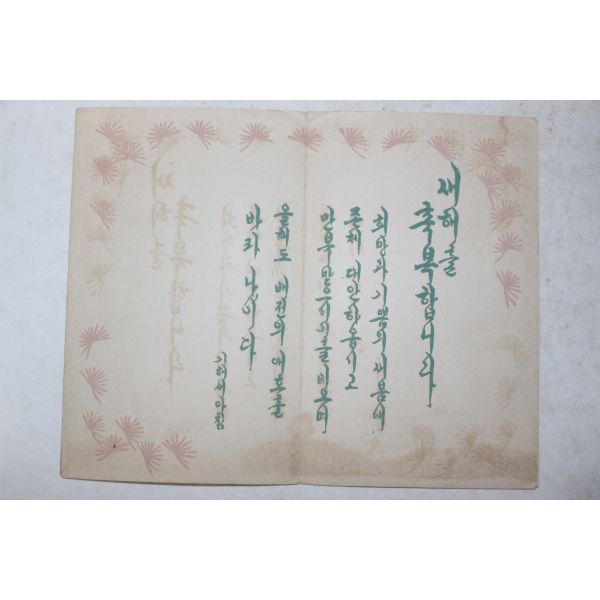 새해를
축복합니다
희망과 기쁨의 새봄에
존체 대안하옵시고
만복 받으시기를 비오며
올해도 배전의 애호를
바라나이다
새해 아침